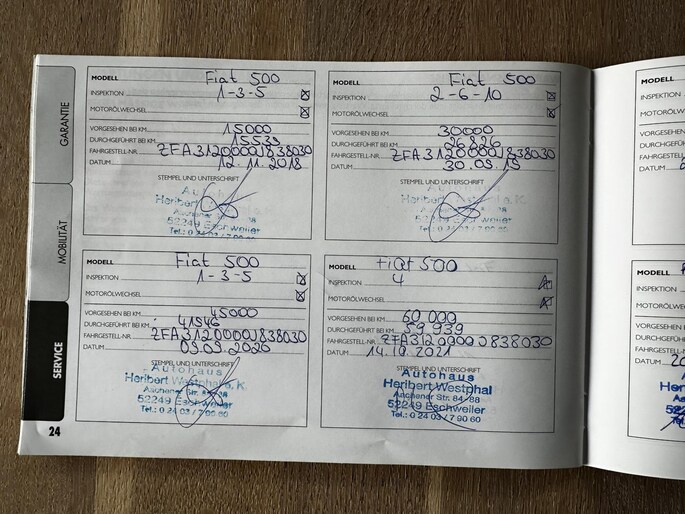 GARANTIE
MOBILITÄT
SERVICE
24
MODELL Fiat 500
INSPEKTION 1-3-5
MOTORÖLWECHSEL
VORGESEHEN BEI KM 15000
DURCHGEFÜHRT BEI KM 15539
FAHRGESTELL-NR. ZFA3120000J838030
DATUM 12.11.2018
STEMPEL UND UNTERSCHRIFT
Autohaus
Heribert
Aachener Str.
52249 Eschweiler
Tel.: 0 24 03 / 7 90 60
MODELL Fiat 500
INSPEKTION 2-6-10
MOTORÖLWECHSEL
VORGESEHEN BEI KM 30000
DURCHGEFÜHRT BEI KM 26826
FAHRGESTELL-NR. ZFA3120000J838030
DATUM 30.09.19
STEMPEL UND UNTERSCHRIFT
Autohaus
Heribert Westphal e. K.
Aachener Str.
52249 Eschweiler
Tel.: 0 24 03 / 7 90 60
MODELL Fiat 500
INSPEKTION 1-3-5
MOTORÖLWECHSEL
VORGESEHEN BEI KM 45000
DURCHGEFÜHRT BEI KM 41546
FAHRGESTELL-NR. ZFA3120000J838030
DATUM 09.09.2020
STEMPEL UND UNTERSCHRIFT
Autohaus
Heribert Westphal e. K.
Aachener Str. 84-88
52249 Eschweiler
Tel.: 0 24 03 / 7 90 60
MODELL Fiat 500
INSPEKTION 4
MOTORÖLWECHSEL
VORGESEHEN BEI KM 60 000
DURCHGEFÜHRT BEI KM 59 939
FAHRGESTELL-NR. ZFA3120000J838030
DATUM 14.10.2021
STEMPEL UND UNTERSCHRIFT
Autohaus
Heribert Westphal
Aachener Str. 84-88
52249 Eschweiler
Tel.: 0 24 03 / 7 90 60
MODELL
INSPEKTION
MOTORÖLWE
VORGESEHEN
DURCHGEFÜH
FAHRGESTELL
DATUM
MODELL
INSPEKTION
MOTORÖLWE
VORGESEHEN
DURCHGEFÜH
FAHRGESTELL
DATUM 20